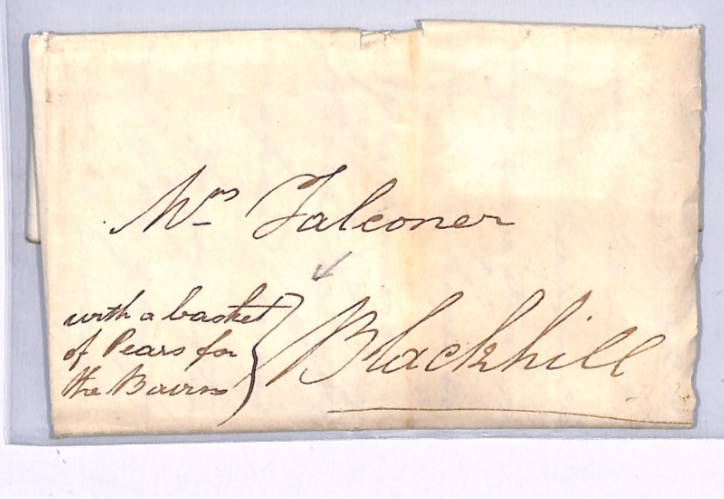 Mrs Falconer
with a basket
of Pears for
the Bairns
Blackhill